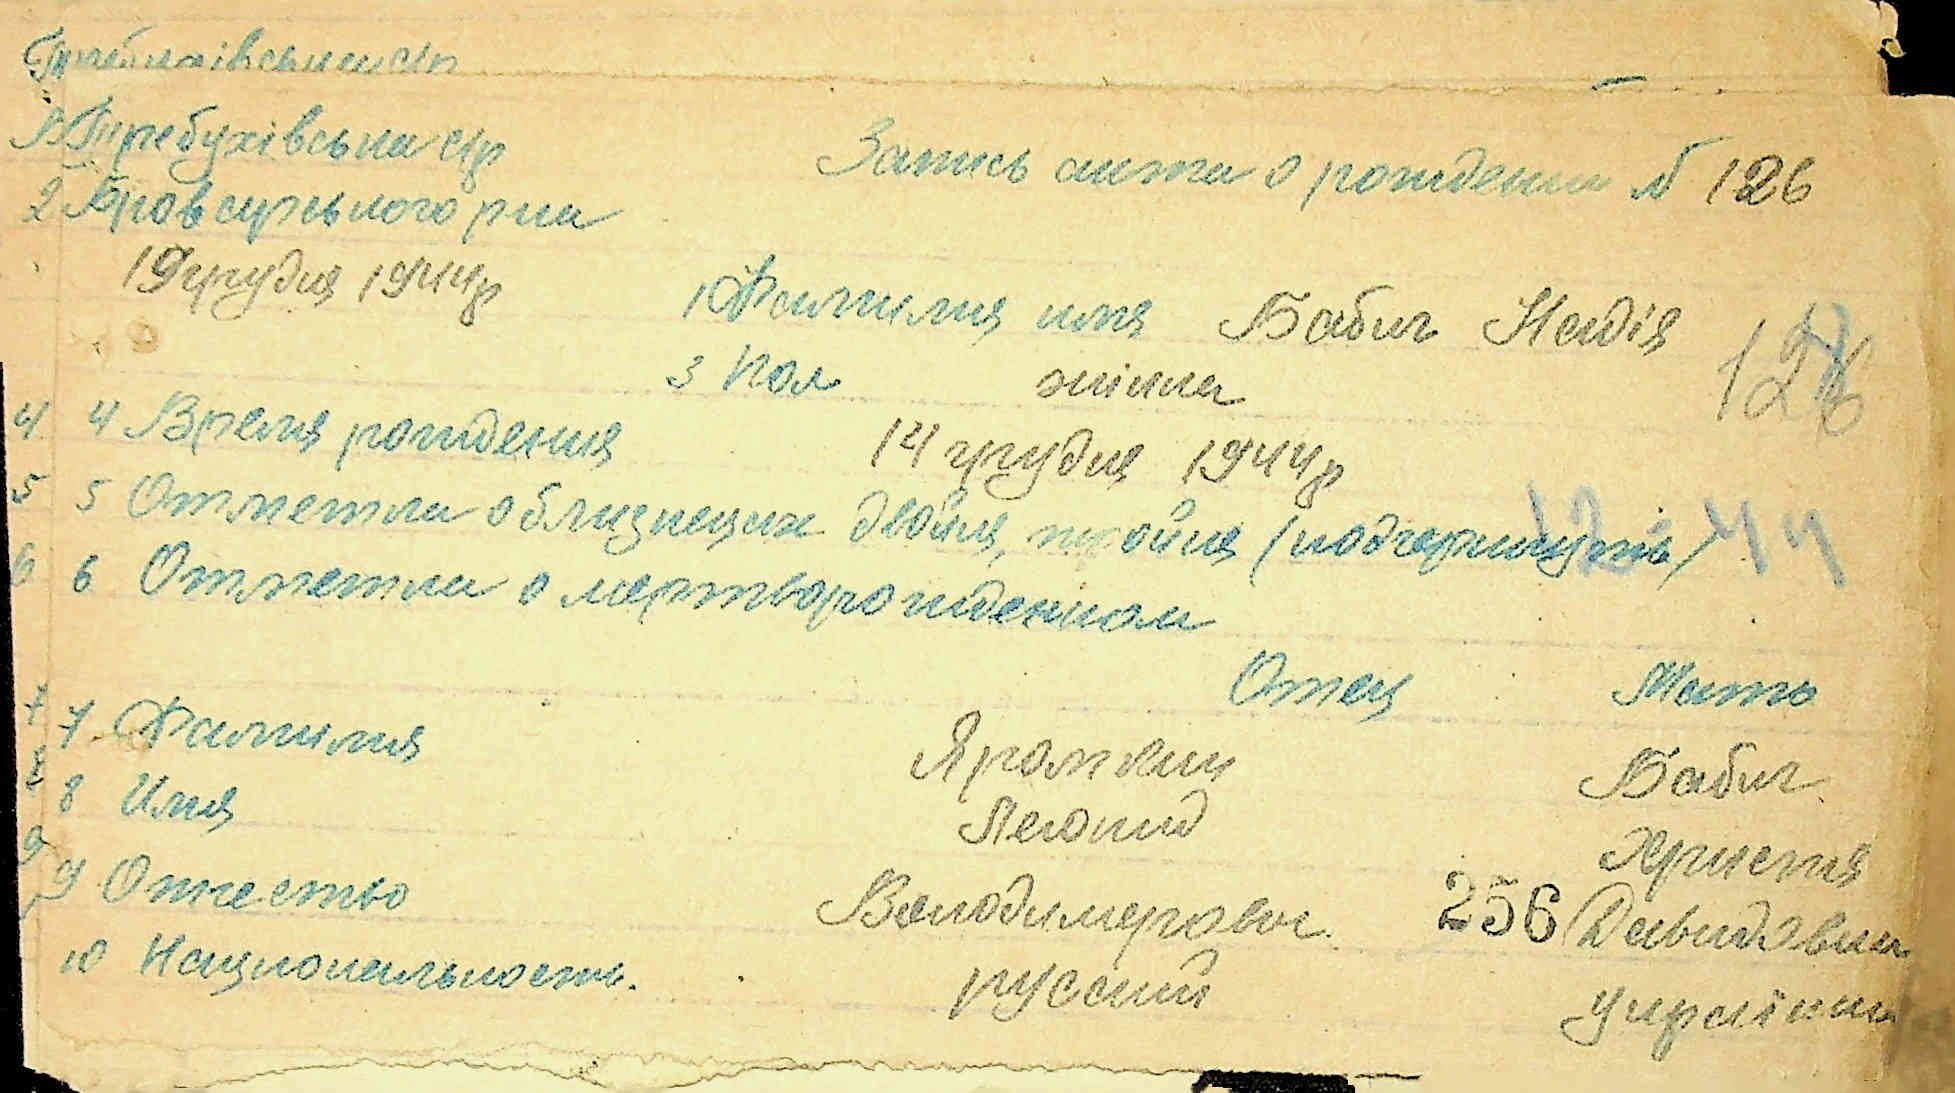 Требухівська с/р
Требухівська с/р
Запись акта о рождении № 126
2 Броварського р-на
19 грудня 1944 р
1 Фамилия имя Бабич Надія
126
3 Пол жінка
4 4 Время рождения 14 грудня 1944 р
5 5 Отметка о близнецах двойня, тройня (подчеркнуть)
12 44
6 6 Отметка о мертворождении
Отец Мать
7 7 Фамилия Бабич
8 8 Имя Леонид Христя
9 9 Отчество Володимерович 256 Давидовна
10 Национальность. русский україн